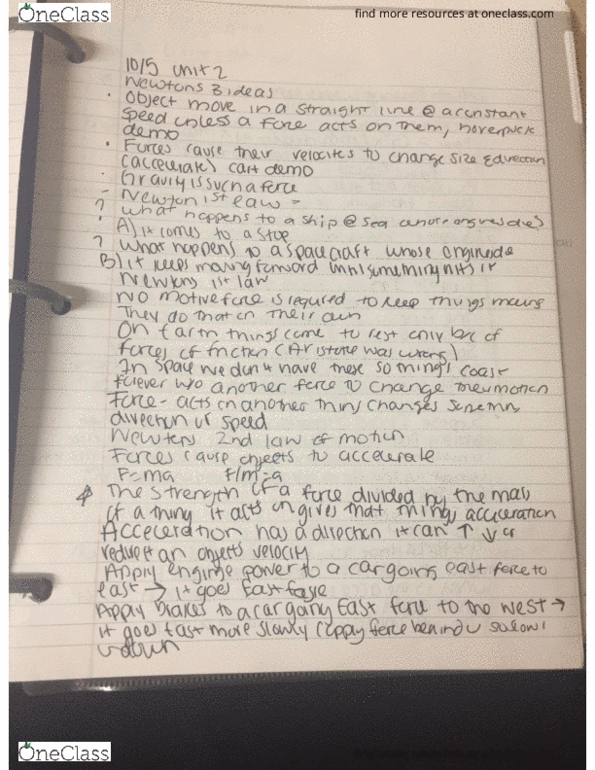 OneClass
find more resources at oneclass.com
10/5 Unit 2
Newtons 3 ideas
· Object move in a straight line @ a constant
speed unless a force acts on them, hoverpuck
demo
· Forces cause their velocities to change size & direction
(accelerate) cart demo
· Gravity is such a force
- Newton 1st law =
? What happens to a ship @ sea engines die
A) it comes to a stop
? What happens to a spacecraft whose engine
B) it keeps moving forward until something hits it
Newtons 1st law
No motive force is required to keep things moving
They do that on their own
On Earth things come to rest only bc of
forces of friction (Aristotle was wrong)
In space we don't have these so things coast
forever w/o another force to change motion
Force - acts on another thing changes
direction or speed
Newtons 2nd law of motion
Forces cause objects to accelerate
F=ma F/m=a
The strength of a force divided by the mass
of a thing it acts on gives that things acceleration
Acceleration has a direction it can ↑ ↓ or
redirect an objects velocity
Apply engine power to a car going east force to
east → it goes east
Apply brakes to a car going East force to the west →
it goes east more slowly (apply force behind u
down
OneClass